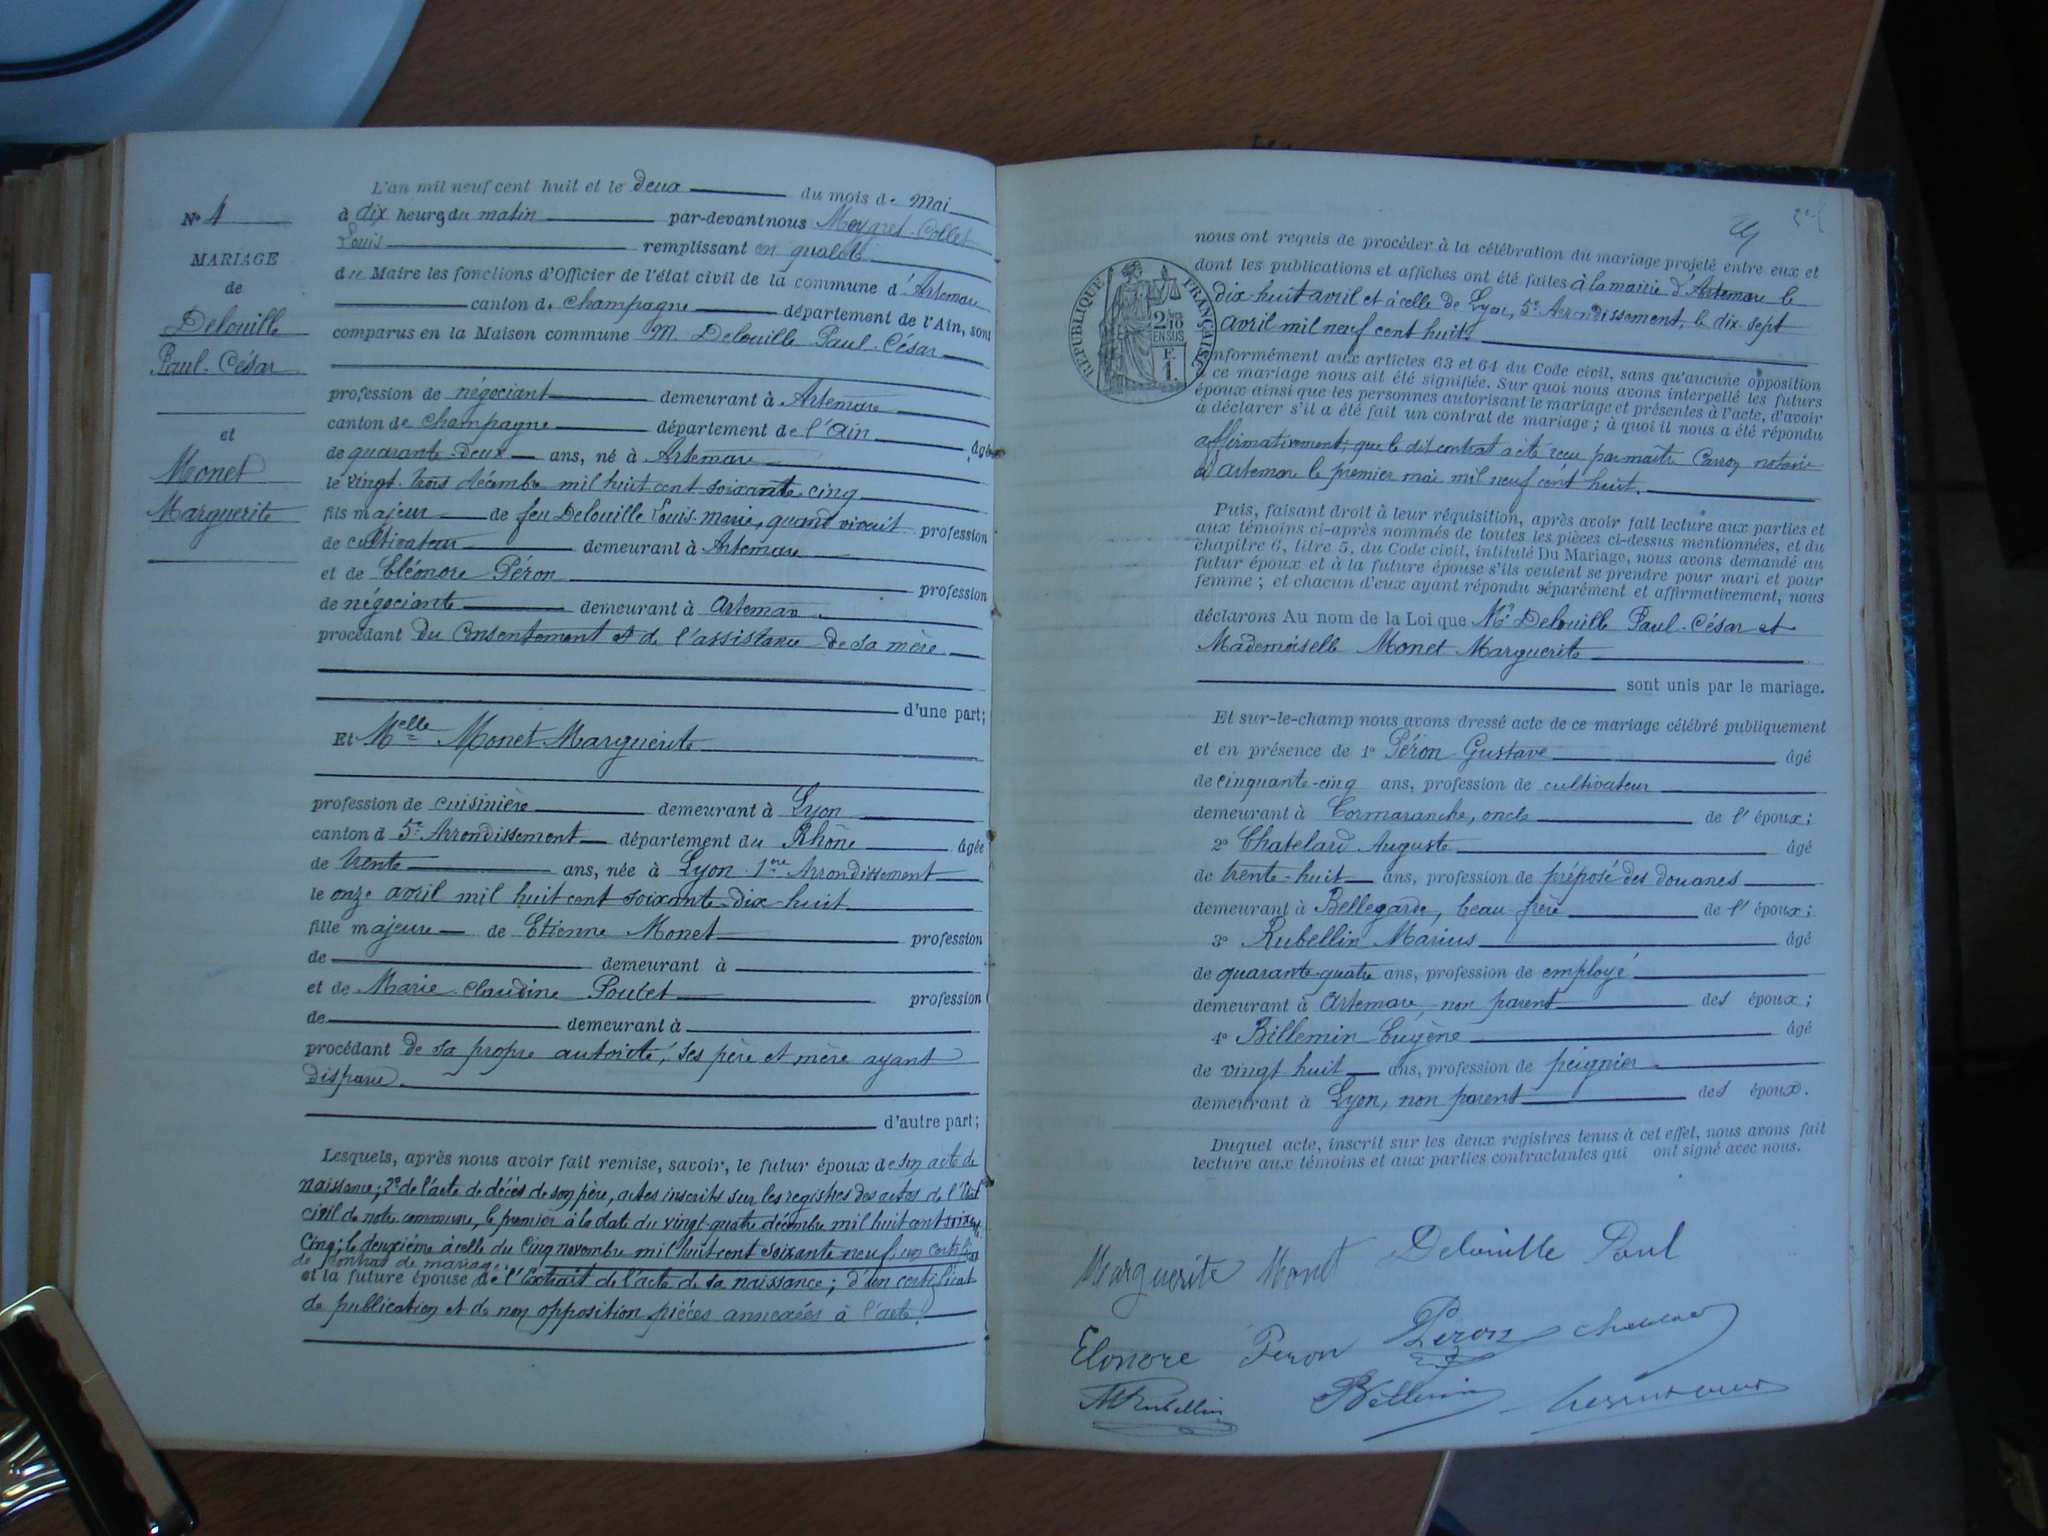 N° 4
MARIAGE
de
Delouille
Paul-César
et
Monet
Marguerite
L'an mil neuf cent huit et le deux du mois de Mai
à dix heures du matin par-devant nous Meygret-Collet
Louis remplissant en qualité
de Maire les fonctions d'Officier de l'état civil de la commune d'Artemare
canton de Champagne département de l'Ain, sont
comparus en la Maison commune M. Delouille Paul-César
profession de négociant demeurant à Artemare
canton de Champagne département de l'Ain âgé
de quarante-deux ans, né à Artemare
le vingt-trois décembre mil huit cent soixante cinq
fils majeur de feu Delouille Louis-marie, quand vivait profession
de cultivateur demeurant à Artemare
et de Eléonore Péron profession
de négociante demeurant à Artemare
procédant du consentement et de l'assistance de sa mère
d'une part;
Et Melle Monet Marguerite
profession de cuisinière demeurant à Lyon
canton d 5e Arrondissement département du Rhône âgée
de trente ans, née à Lyon 1er Arrondissement
le onze avril mil huit cent soixante-dix-huit
fille majeure de Etienne Monet profession
de demeurant à
et de Marie-Claudine Poulet profession
de demeurant à
procédant de sa propre autorité, ses père et mère ayant
disparu.
d'autre part;
Lesquels, après nous avoir fait remise, savoir, le futur époux de son acte de
naissance; 2° de l'acte de décès de son père, actes inscrits sur les registres des actes de l'Etat
civil de notre commune, le premier à la date du vingt-quatre décembre mil huit cent soixante
cinq; le deuxième à celle du cinq novembre mil huit cent soixante neuf, un certificat
de contrat de mariage;
et la future épouse de l'Extrait de l'acte de sa naissance; d'un certificat
de publication et de non opposition pièces annexées à l'acte.
RÉPUBLIQUE FRANÇAISE
2/10
EN SUS
F.
1.
nous ont requis de procéder à la célébration du mariage projeté entre eux et
dont les publications et affiches ont été faites à la mairie d'Artemare le
dix-huit avril et à celle de Lyon, 5e Arrondissement, le dix-sept
avril mil neuf cent huit
conformément aux articles 63 et 64 du Code civil, sans qu'aucune opposition
à ce mariage nous ait été signifiée. Sur quoi nous avons interpellé les futurs
époux ainsi que les personnes autorisant le mariage et présentes à l'acte, d'avoir
à déclarer s'il a été fait un contrat de mariage; à quoi il nous a été répondu
affirmativement, que le dit contrat a été reçu par maître Carron notaire
à Artemare le premier mai mil neuf cent huit.
Puis, faisant droit à leur réquisition, après avoir fait lecture aux parties et
aux témoins ci-après nommés de toutes les pièces ci-dessus mentionnées, et du
chapitre 6, titre 5, du Code civil, intitulé Du Mariage, nous avons demandé au
futur époux et à la future épouse s'ils veulent se prendre pour mari et pour
femme; et chacun d'eux ayant répondu séparément et affirmativement, nous
déclarons Au nom de la Loi que Mr Delouille Paul-César et
Mademoiselle Monet Marguerite
sont unis par le mariage.
Et sur-le-champ nous avons dressé acte de ce mariage célébré publiquement
et en présence de 1° Péron Gustave âgé
de cinquante-cinq ans, profession de cultivateur
demeurant à Cormaranche, oncle de l'époux;
2° Chatelard Auguste âgé
de trente-huit ans, profession de préposé des douanes
demeurant à Bellegarde, beau-frère de l'époux;
3° Rubellin Marius âgé
de quarante-quatre ans, profession de employé
demeurant à Artemare, non parent des époux;
4° Billemin Eugène âgé
de vingt huit ans, profession de peignier
demeurant à Lyon, non parent des époux.
Duquel acte, inscrit sur les deux registres tenus à cet effet, nous avons fait
lecture aux témoins et aux parties contractantes qui ont signé avec nous.
Marguerite Monet Delouille Paul
Elonore Peron Péron
MRubellin Billemin